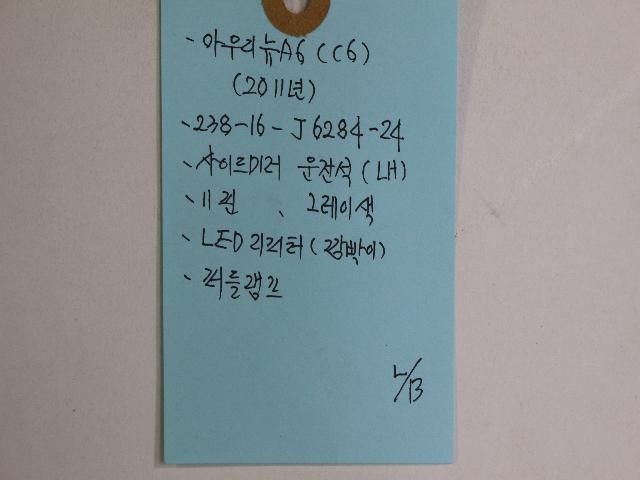 - 아우디뉴A6 (C6)
(2011년)
- 238-16-J6284-24
- 사이드미러 운전석 (LH)
- 11핀 、 그레이색
- LED 리피터 (깜빡이)
- 퍼들램프
L/B